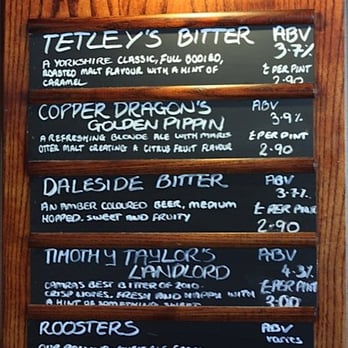 TETLEY'S BITTER ABV
3.7%
A YORKSHIRE CLASSIC, FULL BODIED,
ROASTED MALT FLAVOUR WITH A HINT OF
CARAMEL
£ PER PINT
2.90
COPPER DRAGON'S ABV
GOLDEN PIPPIN 3.9%
A REFRESHING BLONDE ALE WITH MARIS
OTTER MALT CREATING A CITRUS FRUIT FLAVOUR
£ PER PINT
2.90
DALESIDE BITTER ABV
3.7%
AN AMBER COLOURED BEER, MEDIUM
HOPPED. SWEET AND FRUITY
£ PER PINT
2-90
TIMOTHY TAYLOR'S ABV
LANDLORD 4.3%
CAMRA'S BEST BITTER OF 2010.
CRISP FRESH AND HAPPY WITH
A HINT OF SOMETHING SWEET
£ PER PINT
3.00
ROOSTERS ABV
varies